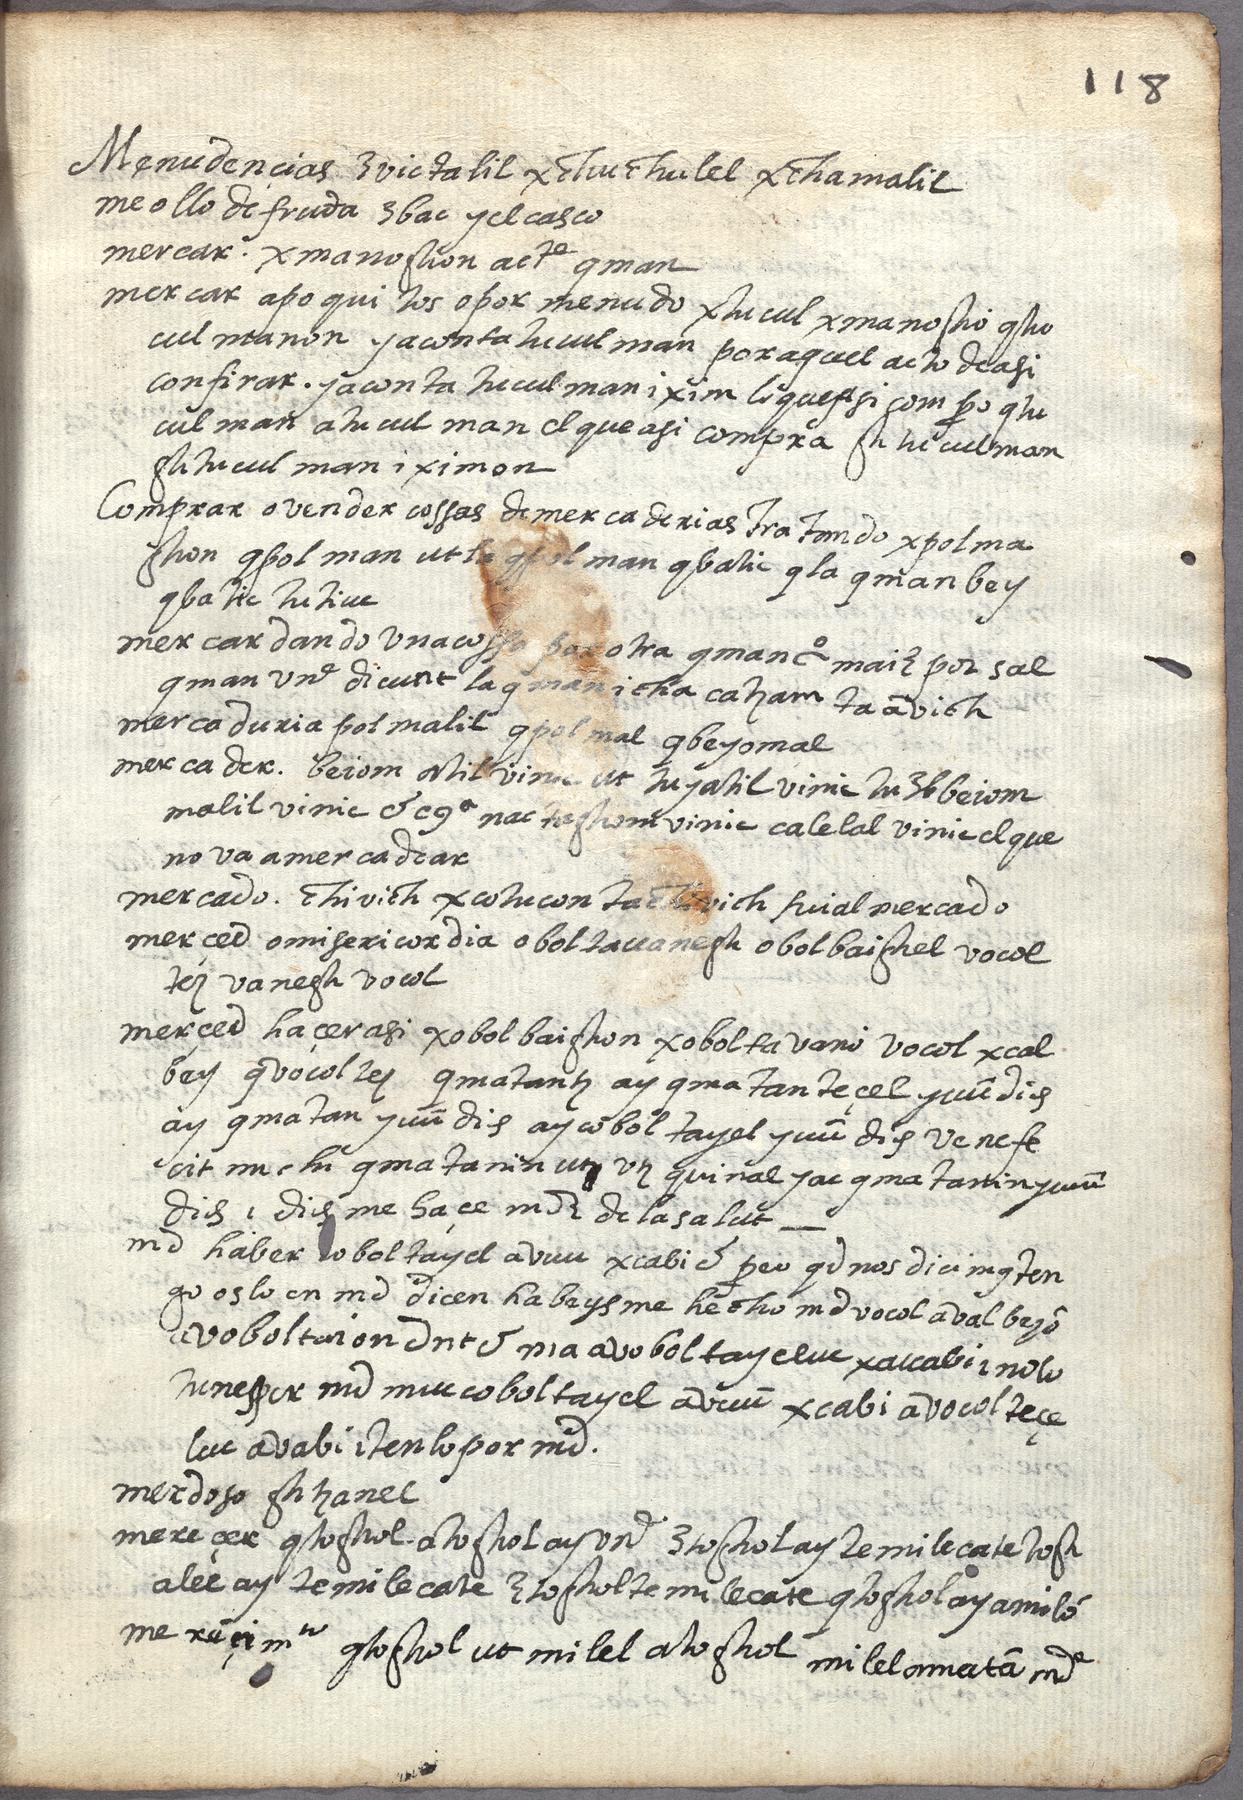 118
Menudençias ʒvictalil xchuchulel xchamalil
meollo de fruda ʒbac yel casco
mercar. xmanoghon acte qman
mercar apoquitos o por menudo xtucul xmanoghō qtu
cul manon yaconta tucul man por aquel acto de asi
confirar. yaconta tucul man ixim lo que assi com po qtu
cul man atucul man el que asi compra gh tucul man
ghtucul man iximon
Comprar o vender cossas de mercaderias tratando xpolma
ghon qpol man ut la qpol man qbatic qla qman bey
qbatic tutiuc
mercar dando una cossa por otra qman co maiz por sal
qman vne dicunt la qman icha caham ta avich
mercaduria polmalil qpolmal qbeyomal
mercader. beiom atil vinic ut tuyatil vinic tuʒbbeiom
malil vinic & cqa nac taghom vinic calelal vinic el que
no va a mercadear
mercado. chivich xcotucon ta chivich fui al mercado
merced o misericordia oboltavanegh obolbaighel vocol
tez vanegh vocol
merçed haçer asi xobolbaighon xoboltavanō vocol xcal
bey qvocoltez qmatantz ay qmatanteçel yuū dis
ay qmatan yuū dis aycoboltayel yuū dis venefe
cit michi qmatanin utz vtz quinal yac qmatanin yuuū
dis i dis me haçe mdz de la salut
md haber coboltayel avuu xcabi & peo qd nos dicimq ten
go oslo en md dicen habeysme hecho md vocol aval beyō
avoboltaion dnt & ma avoboltayeluc xacabi i nolo
tunesser md muc coboltayel avuū xcabi avocolteçe
luc avabi i tenlo por md.
merdoso ghtzanel
mereçer qtoghol. atoghol ay vnd ʒtoghol ay temilecate togh
alee ay temilecate ʒtogholtemilecate qtoghol ay amilō
mereçimto qtoghol ut milel atoghol milel amatā mde